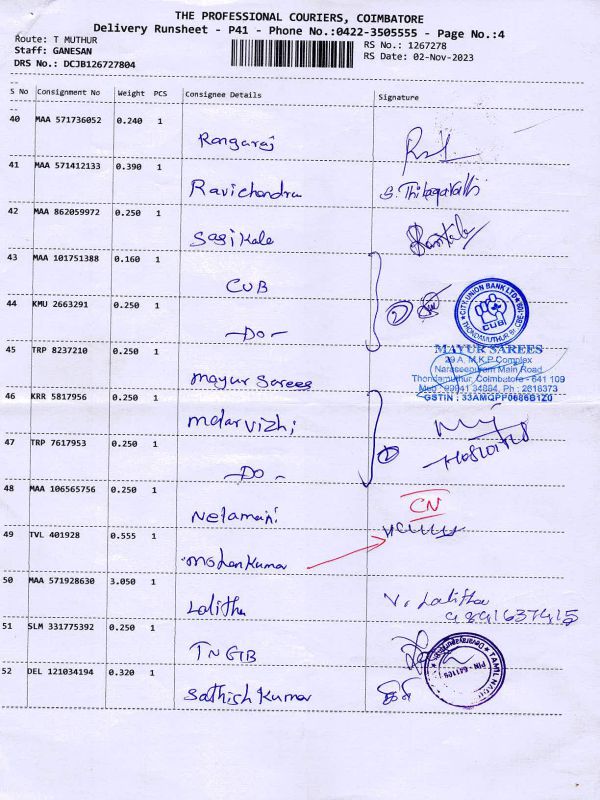 THE PROFESSIONAL COURIERS, COIMBATORE
Delivery Runsheet - P41 - Phone No.:0422-3505555 - Page No.:4
Route: T MUTHUR
RS No.: 1267278
Staff: GANESAN
RS Date: 02-Nov-2023
DRS No.: DCJB126727804
S No Consignment No Weight PCS Consignee Details Signature
40 MAA 571736052 0.240 1
Rangaraj
41 MAA 571412133 0.390 1
Ravichandra S. Thilagavathi
42 MAA 862059972 0.250 1
Sasi Kala
43 MAA 101751388 0.160 1
CUB
2
CITY UNION BANK LTD
THONDAMUTHUR
CUB
44 KMU 2663291 0.250 1
- Do -
MAYUR SAREES
29 A, M.K.P Complex
45 TRP 8237210 0.250 1
Naraseepuram Main Road
Thondamuthur, Coimbatore - 641 109
Mayur Sarees
Ph : 2618373
46 KRR 5817956 0.250 1
Malarvizhi
47 TRP 7617953 0.250 1
- Do -
48 MAA 106565756 0.250 1
CN
49 TVL 401928 0.555 1
Mohankumar
50 MAA 571928630 3.050 1
Lalitha V. Lalitha
51 SLM 331775392 0.250 1
TNGB
TAMIL NADU
52 DEL 121034194 0.320 1
Sathish Kumar